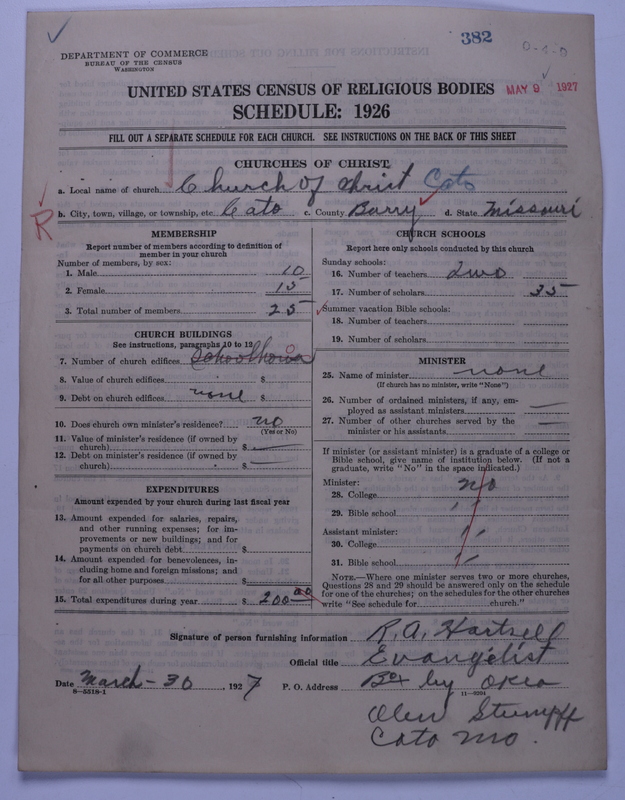 382
0-1-0
DEPARTMENT OF COMMERCE
BUREAU OF THE CENSUS
WASHINGTON
UNITED STATES CENSUS OF RELIGIOUS BODIES
MAY 9 1927
SCHEDULE: 1926
FILL OUT A SEPARATE SCHEDULE FOR EACH CHURCH. SEE INSTRUCTIONS ON THE BACK OF THIS SHEET
CHURCHES OF CHRIST
a. Local name of church Church of Christ Cato
R
b. City, town, village, or township, etc. Cato c. County Barry d. State Missouri
MEMBERSHIP
Report number of members according to definition of
member in your church
Number of members, by sex:
1. Male 10
2. Female 15
3. Total number of members 25
CHURCH BUILDINGS
See instructions, paragraphs 10 to 12
7. Number of church edifices Schoolhouse
8. Value of church edifices $
9. Debt on church edifices none $
10. Does church own minister's residence? no
(Yes or No)
11. Value of minister's residence (if owned by
church) $
12. Debt on minister's residence (if owned by
church) $
EXPENDITURES
Amount expended by your church during last fiscal year
13. Amount expended for salaries, repairs,
and other running expenses; for im-
provements or new buildings; and for
payments on church debt $
14. Amount expended for benevolences, in-
cluding home and foreign missions; and
for all other purposes $
15. Total expenditures during year $ 200.00
CHURCH SCHOOLS
Report here only schools conducted by this church
Sunday schools:
16. Number of teachers two
17. Number of scholars 35
Summer vacation Bible schools:
18. Number of teachers
19. Number of scholars
MINISTER
25. Name of minister none
(If church has no minister, write "None")
26. Number of ordained ministers, if any, em-
ployed as assistant ministers —
27. Number of other churches served by the
minister or his assistants —
If minister (or assistant minister) is a graduate of a college or
Bible school, give name of institution below. (If not a
graduate, write "No" in the space indicated.)
Minister:
28. College no
29. Bible school "
Assistant minister:
30. College "
31. Bible school "
NOTE.—Where one minister serves two or more churches,
Questions 28 and 29 should be answered only on the schedule
for one of the churches; on the schedules for the other churches
write "See schedule for church."
Signature of person furnishing information R. A. Hartsell
Official title Evangelist
Date March - 30, 1927 P. O. Address
8-5518-1
Olen Stumpff
Cato Mo.